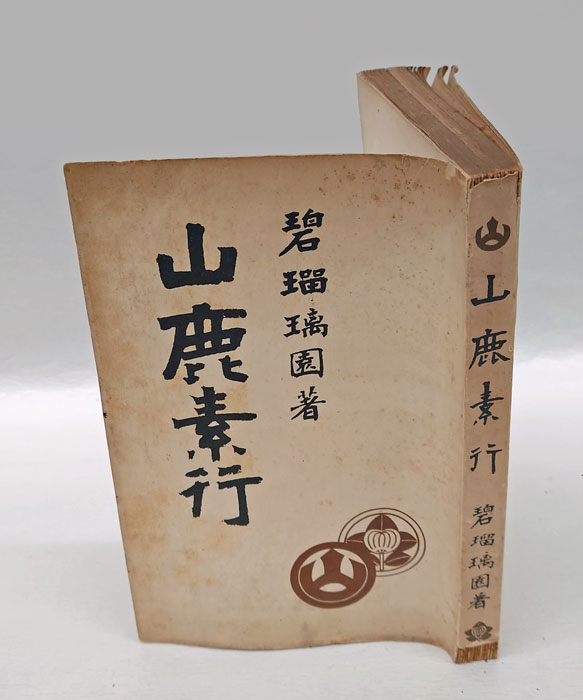 碧瑠璃園著
山鹿素行
山鹿素行
碧瑠璃園著